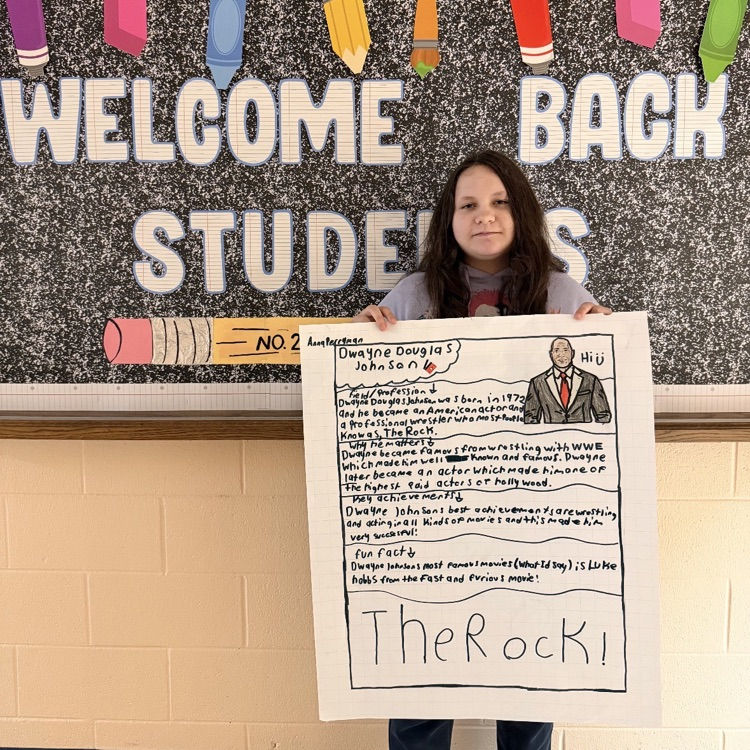 WELCOME BACK
STUDE S
NO. 2
Anna Perryman
Dwayne Douglas
Johnson
Hi
Field/Profession ↓
Dwayne Douglas Johnson was born in 1972
and he became an American actor and
a professional wrestler who most People
Know as, The Rock.
Why he matters ↓
Dwayne became famous from wrestling with WWE
which made him well Known and famous. Dwayne
later became an actor which made him one of
the highest paid actors of hollywood.
Key achievements ↓
Dwayne Johnsons best achievements are wrestling
and acting in all Kinds of movies and this made him
very successful!
fun fact ↓
Dwayne Johnsons most famous movies (what I'd say) is Luke
hobbs from the Fast and furious movie!
The Rock!